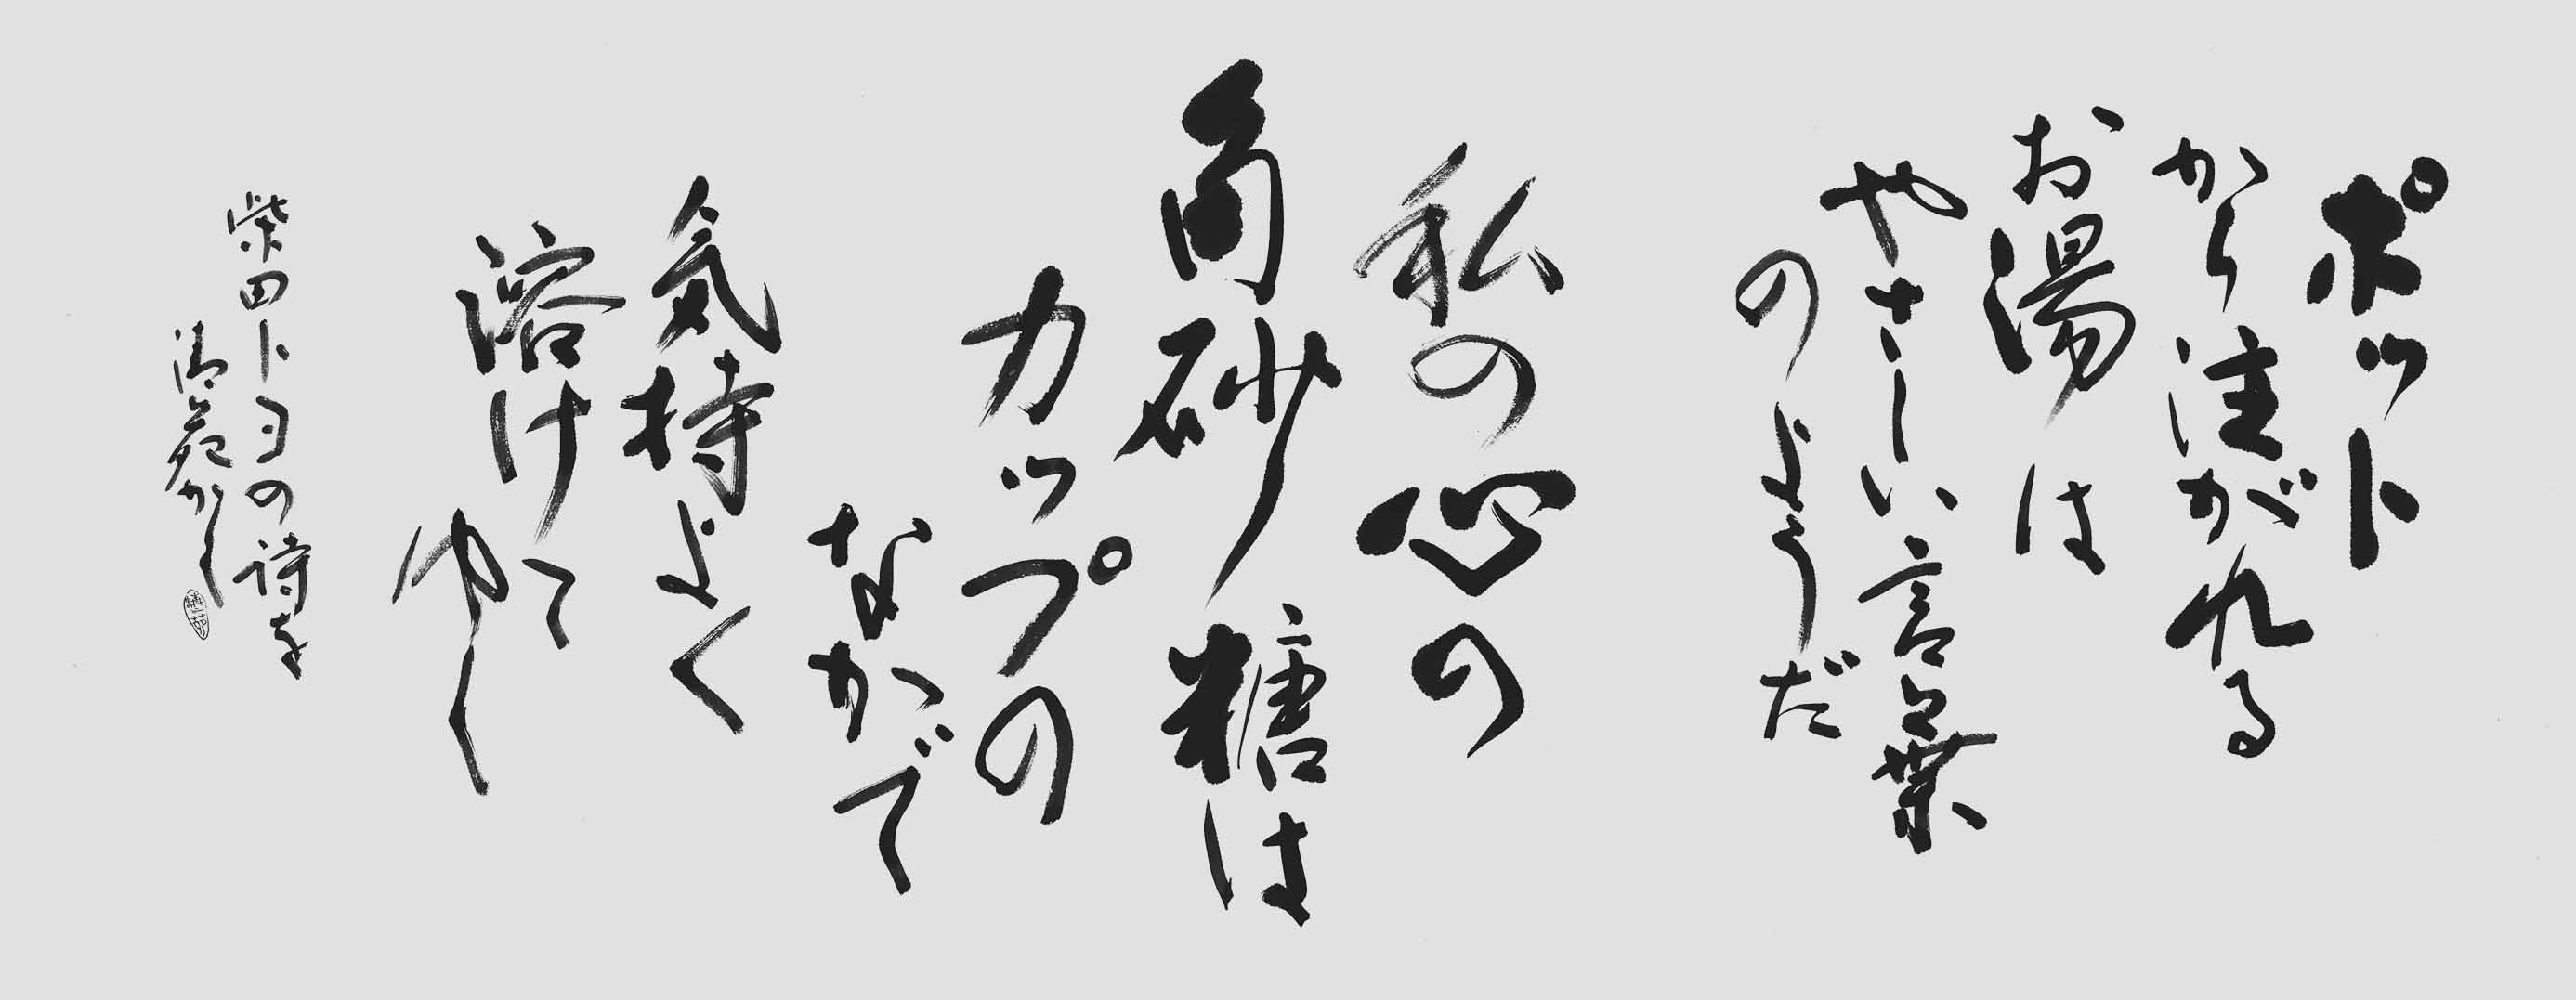 ポット
から注がれる
お湯は
やさしい言葉
のようだ
私の心の
角砂糖は
カップの
なかで
気持よく
溶けて
ゆく
柴田トヨの詩を
清苑かく